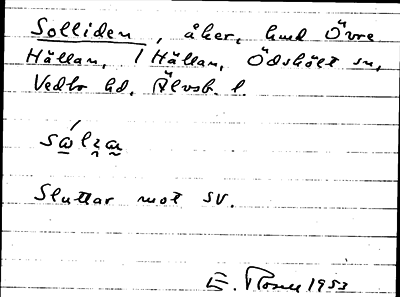 Solliden, åker, hmd Övre
Hällan, / Hällan, Ödskölt sn,
Vedbo hd, Älvsb. l.
Sluttar mot SV.
E. 1953